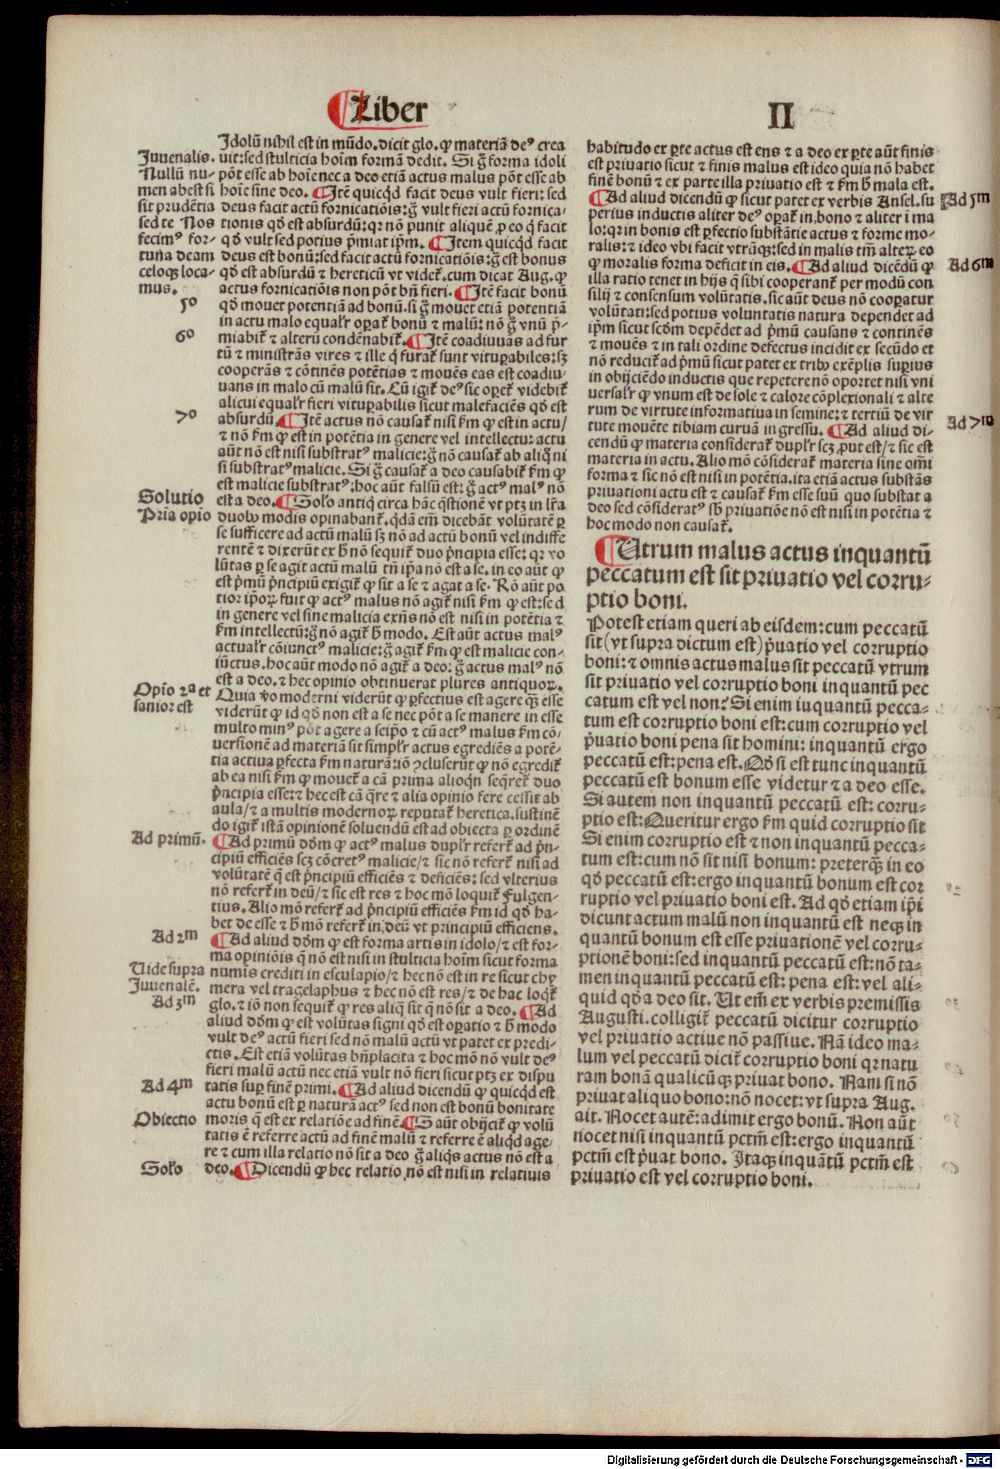 Liber
II
Juuenalis.
Nullū nu-
men abest si
sit prudētia
sed te Nos
fecimꝰ for-
tuna deam
celoqꝫ loca-
mus.
5º
6º
7º
Solutio
Pria opio
Opīo 2ª et
sanior est
Ad primū.
Ad 2ᵐ
Uide supra
Juuenalē.
Ad 3ᵐ
Ad 4ᵐ
Obiectio
Solo
Idolū nihil est in mūdo. dicit glo. ꝙ materiā deꝰ crea
uit: sed stulticia hoīm formā dedit. Si ḡ forma idoli
pōt esse ab hoīe nec a deo etiā actus malus pōt esse ab
hoīe sine deo. ¶ Itē quicqd facit deus vult fieri: sed
deus facit actū fornicatiōis: ḡ vult fieri actū fornica-
tionis qd est absurdū: qꝛ nō punit aliquē ꝓ eo qd facit
qd vult sed potius p̄miat ip̄m. ¶ Item quicqd facit
deus est bonū: sed facit actū fornicatiōis: ḡ est bonus
qd est absurdū ⁊ hereticū vt videt̄. cum dicat Aug. ꝙ
actus fornicatiōis non pōt bn̄ fieri. ¶ Itē facit bonū
qd mouet potentiā ad bonū. si ḡ mouet etiā potentiā
in actu malo equalr̄ operat̄ bonū ⁊ malū: nō ḡ vnū p̄-
miabit̄ ⁊ alterū condēnabit̄. ¶ Itē coadiuuās ad fur
tū ⁊ ministrās vires ⁊ ille q̄ furat̄ sunt vituꝑabiles: sꝫ
cooperās ⁊ cōtinēs potētias ⁊ mouēs eas est coadiu-
uans in malo cū malū sit. Cū igit̄ deꝰ sic oꝑet̄ videbit̄
alicui equalr̄ fieri vituꝑabilis sicut malefaciēs qd est
absurdū. ¶ Itē actus nō causat̄ nisi km̄ ꝙ est in actu/
⁊ nō km̄ ꝙ est in potētia in genere vel intellectu: actu
aūt nō est nisi substratꝰ malicie: ḡ nō causat̄ ab aliq̄ ni
si substratꝰ malicie. Si ḡ causat̄ a deo causabit̄ km̄ ꝙ
est malicie substratꝰ: hoc aūt falsū est: ḡ actꝰ malꝰ nō
est a deo. ¶ Solo antiq̄ circa hāc q̄stionē vt ptꝫ in lr̄a
duobꝰ modis opinabant̄. q̄dā em̄ dicebāt volūtatē ꝑ
se sufficere ad actū malū sꝫ nō ad actū bonū vel indiffe
rentē ⁊ dixerūt ex hᵒ nō sequit̄ duo p̄ncipia esse: qꝛ vo
lūtas ꝑ se agit actū malū tn̄ ip̄a nō est a se. in eo aūt ꝙ
est p̄mū p̄ncipiū exigit̄ ꝙ sit a se ⁊ agat a se. Rō aūt po
tior ip̄oꝝ fuit ꝙ actꝰ malus nō agit̄ nisi km̄ ꝙ est: sed
in genere vel sine malicia exn̄s nō est nisi in potētia ⁊
km̄ intellectū: ḡ nō agit̄ hᵒ modo. Est aūt actus malꝰ
actualr̄ cōiunctꝰ malicie: ḡ agit̄ km̄ ꝙ est malicie con-
iūctus. hoc aūt modo nō agit̄ a deo: ḡ actus malꝰ nō
est a deo. ⁊ hec opinio obtinuerat plures antiquoꝝ.
Quia vo moderni viderūt ꝙ ꝑfectius est agere qꝫ esse
viderūt ꝙ id qd non est a se nec pōt a se manere in esse
multo minꝰ pōt agere a seip̄o ⁊ cū actꝰ malus km̄ cō-
uersionē ad materiā sit simplr̄ actus egrediēs a potē-
tia actiua ꝑfecta km̄ naturā: iō ꝯcluserūt ꝙ nō egredit̄
ab ea nisi km̄ ꝙ mouet̄ a cā prima alioqn̄ seq̄ret̄ duo
p̄ncipia esse: ⁊ hec est cā q̄re ⁊ alia opinio fere cessit ab
aula/ ⁊ a multis modernoꝝ reputat̄ heretica. sustinē
do igit̄ istā opinionē soluendū est ad obiecta ꝑ ordinē
¶ Ad primū dōm ꝙ actꝰ malus duplr̄ refert̄ ad p̄n-
cipiū efficiēs scꝫ cōcretꝰ malicie/ ⁊ sic nō refert̄ nisi ad
volūtatē q̄ est p̄ncipiū efficiēs ⁊ deficiēs: sed vlterius
nō refert̄ in deū/ ⁊ sic est res ⁊ hoc mō loquit̄ Fulgen-
tius. Alio mō refert̄ ad p̄ncipiū efficiēs km̄ id qd ha-
bet de esse ⁊ hᵒ mō refert̄ in deū vt principiū efficiens.
¶ Ad aliud dōm ꝙ est forma artis in idolo/ ⁊ est for-
ma opiniōis q̄ nō est nisi in stulticia hoīm sicut forma
numis crediti in esculapio/ ⁊ hec nō est in re sicut chy
mera vel tragelaphus ⁊ hec nō est res/ ⁊ de hac loqt̄
glo. ⁊ iō non sequit̄ ꝙ res aliq̄ sit q̄ nō sit a deo. ¶ Ad
aliud dōm ꝙ est volūtas signi qd est oꝑatio ⁊ hᵒ modo
vult deꝰ actū fieri sed nō malū actū vt patet ex predi-
ctis. Est etiā volūtas bn̄placita ⁊ hoc mō nō vult deꝰ
fieri malū actū nec etiā vult nō fieri sicut ptꝫ ex dispu
tatis suꝑ finē primi. ¶ Ad aliud dicendū ꝙ quicqd est
actu bonū est ꝑ naturā actꝰ sed non est bonū bonitate
moris q̄ est ex relatiōe ad finē. ¶ S aūt obijcit̄ ꝙ volū
tatis ē referre actū ad finē malū ⁊ referre ē aliqd age-
re ⁊ cum illa relatio nō sit a deo ḡ aliqs actus nō est a
deo. ¶ Dicendū ꝙ hec relatio nō est nisi in relatiuis
habitudo ex ꝑte actus est ens ⁊ a deo ex ꝑte aūt finis
est priuatio sicut ⁊ finis malus est ideo quia nō habet
finē bonū ⁊ ex parte illa priuatio est ⁊ km̄ hᵒ mala est.
¶ Ad aliud dicendū ꝙ sicut patet ex verbis Ansel. su
perius inductis aliter deꝰ oꝑat̄ in bono ⁊ aliter ī ma
lo: qꝛ in bonis est ꝑfectio substātie actus ⁊ forme mo-
ralis: ⁊ ideo vbi facit vtrūqꝫ: sed in malis tm̄ alteꝝ eo
ꝙ moralis forma deficit in eis. ¶ Ad aliud dicēdū ꝙ
illa ratio tenet in hijs q̄ sibi cooperant̄ per modū con
silij ⁊ consensum volūtatis. sic aūt deus nō cooꝑatur
volūtati: sed potius voluntatis natura dependet ad
ip̄m sicut scdm depēdet ad p̄mū causans ⁊ continēs
⁊ mouēs ⁊ in tali ordine defectus incidit ex secūdo et
nō reducit̄ ad p̄mū sicut patet ex tribꝰ exēplis suꝑius
in obijciēdo inductis que repetere nō oportet nisi vni
uersalr̄ ꝙ vnum est de sole ⁊ calore cōplexionali ⁊ alte
rum de virtute informatiua in semine: ⁊ tertiū de vir
tute mouēte tibiam curuā ingressu. ¶ Ad aliud di-
cendū ꝙ materia considerat̄ duplr̄ scꝫ ꝓut est/ ⁊ sic est
materia in actu. Alio mō cōsiderat̄ materia sine om̄i
forma ⁊ sic nō est nisi in potētia. ita etiā actus substās
priuationi actu est ⁊ causat̄ km̄ esse suū quo substat a
deo sed cōsideratꝰ sb̄ priuatiōe nō est nisi in potētia ⁊
hoc modo non causat̄.
¶ Utrum malus actus inquantū
peccatum est sit priuatio vel corru-
ptio boni.
Potest etiam queri ab eisdem: cum peccatū
sit (vt supra dictum est) p̄uatio vel corruptio
boni: ⁊ omnis actus malus sit peccatū vtrum
sit priuatio vel corruptio boni inquantū pec
catum est vel non? Si enim inquantū pecca-
tum est corruptio boni est: cum corruptio vel
p̄uatio boni pena sit homini: inquantū ergo
peccatū est: pena est. Qd si est tunc inquantū
peccatū est bonum esse videtur ⁊ a deo esse.
Si autem non inquantū peccatū est: corru-
ptio est: Queritur ergo km̄ quid corruptio sit
Si enim corruptio est ⁊ non inquantū pecca-
tum est: cum nō sit nisi bonum: preterqꝫ in eo
qd peccatū est: ergo inquantū bonum est cor
ruptio vel priuatio boni est. Ad qd etiam ip̄i
dicunt actum malū non inquantū est neqꝫ in
quantū bonum est esse priuationē vel corru-
ptionē boni: sed inquantū peccatū est: nō ta-
men inquantū peccatū est: pena est: vel ali-
quid qd a deo sit. Ut em̄ ex verbis premissis
Augusti. colligit̄ peccatū dicitur corruptio
vel priuatio actiue nō passiue. Nā ideo ma-
lum vel peccatū dicit̄ corruptio boni qꝛ natu
ram bonā qualicūqꝫ priuat bono. Nam si nō
priuat aliquo bono: nō nocet: vt supra Aug.
ait. Nocet autē: adimit ergo bonū. Non aūt
nocet nisi inquantū pctm̄ est: ergo inquantū
pctm̄ est p̄uat bono. Itaqꝫ inquātū pctm̄ est
priuatio est vel corruptio boni.
Ad 5ᵐ
Ad 6ᵐ
Ad 7ᵐ
Digitalisierung gefördert durch die Deutsche Forschungsgemeinschaft - DFG